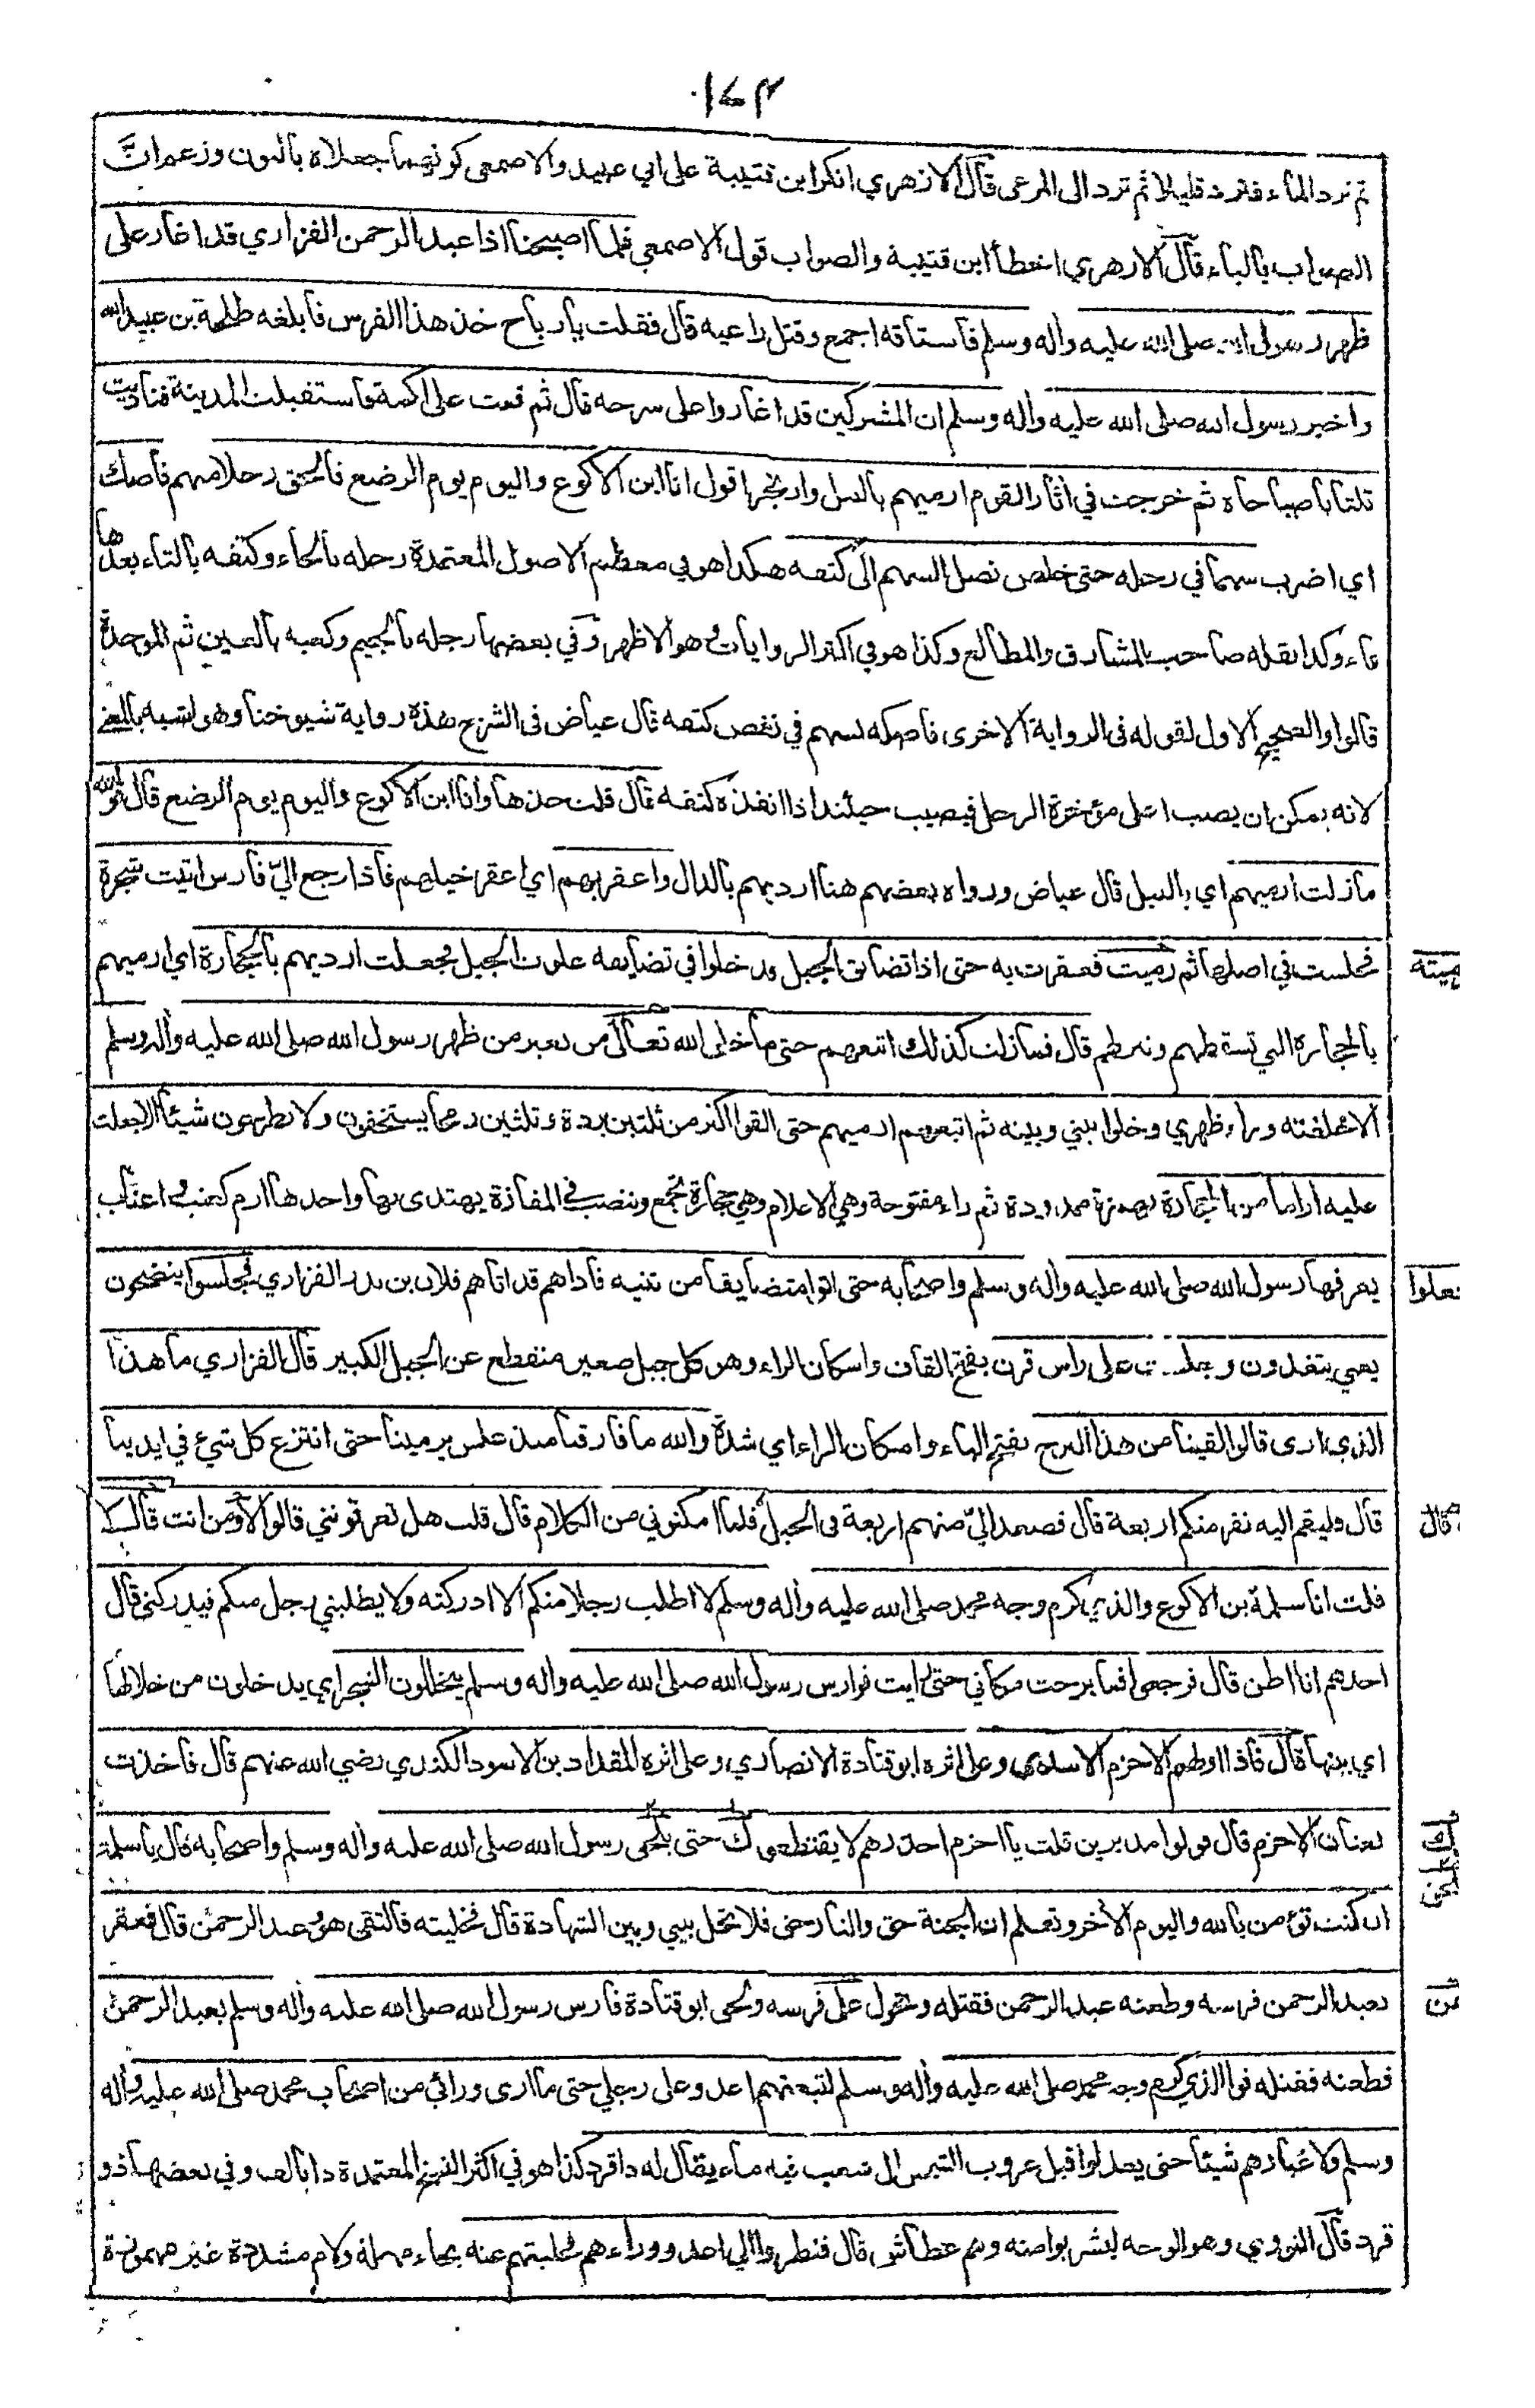 ١٧٣
ثم ترد الماء فترد قليلا ثم ترد الى المرعى قال الازهري انكر ابن قتيبة على ابي عبيد والاصمعي كونهما جعلاه بالنون وزعم ان
الصواب بالباء قال الازهري اخطأ ابن قتيبة والصواب قول الاصمعي فلما اصبحنا اذا عبد الرحمن الفزاري قد اغار على
ظهر رسول الله صلى الله عليه وأله وسلم فاستاقه اجمع وقتل راعيه قال فقلت يا رباح خذ هذا الفرس فأبلغه طلحة بن عبيد الله
واخبر رسول الله صلى الله عليه وأله وسلم ان المشركين قد اغاروا على سرحه قال ثم قمت على اكمة فاستقبلت المدينة فناديت
ثلثا يا صباحاه ثم خرجت في أثار القوم ارميهم بالنبل وارتجز اقول انا ابن الاكوع واليوم يوم الرضع فألحق رجلا منهم فأصك
اي اضرب سهما في رحله حتى خلص نصل السهم الى كتفه هكذا هو في معظم الاصول المعتمدة رحله بالحاء وكتفه بالتاء بعدها
فاء وكذا نقله صاحب المشارق والمطالع وكذا هو في اكثر الروايات وهو الاظهر وفي بعضها رجله بالجيم وكعبه بالعين ثم الموحدة
قالوا والصحيح الاول لقوله في الرواية الاخرى فاصكه بسهم في نغض كتفه قال عياض في الشرح هذه رواية شيوخنا وهو اشبه بالمعنى
لانه يمكن ان يصيب اعلى مؤخرة الرحل فيصيب حينئذ اذا انفذه كتفه قال قلت خذها وانا ابن الاكوع واليوم يوم الرضع قال فوالله
ما زلت ارميهم اي بالنبل قال عياض ورواه بعضهم هنا ارديهم بالدال واعقر بهم اي اعقر خيلهم فاذا رجع اليّ فارس اتيت شجرة
فجلست في اصلها ثم رميت فعقرت به حتى اذا تضايق الجبل ودخلوا في تضايقه علوت الجبل فجعلت ارديهم بالحجارة اي ارميهم
بالحجارة التي تسقطهم قال فما زلت كذلك اتبعهم حتى ما خلق الله تعالى من بعير من ظهر رسول الله صلى الله عليه وأله وسلم
الا خلفته وراء ظهري وخلوا بيني وبينه ثم اتبعهم ارميهم حتى القوا اكثر من ثلثين بردة وثلثين رمحا يستخفون ولا يطرحون شيئا الا جعلت
عليه أراما من الحجارة بهمزة ممدودة ثم راء مفتوحة وهي الاعلام وهي حجارة تجمع وتنصب في المفازة يهتدى بها واحدها ارم كعنب واعناب
يعرفها رسول الله صلى الله عليه وأله وسلم واصحابه حتى اتوا متضايقا من ثنية فاذا هم قد اتاهم فلان بن بدر الفزاري فجلسوا يتضحون
يعني يتغدون وجلست على راس قرن بفتح القاف واسكان الراء وهو كل جبل صغير منقطع عن الجبل الكبير قال الفزاري ما هذا
الذي ارى قالوا لقينا من هذا البرح بفتح الباء واسكان الراء اي شدة والله ما فارقنا منذ غلس يرمينا حتى انتزع كل شيء في ايدينا
قال فليقم اليه نفر منكم اربعة قال فصعد اليّ منهم اربعة في الجبل فلما امكنوني من الكلام قال قلت هل تعرفونني قالوا لا ومن انت قال
قلت انا سلمة بن الاكوع والذي كرم وجه محمد صلى الله عليه وأله وسلم لا اطلب رجلا منكم الا ادركته ولا يطلبني رجل منكم فيدركني قال
احدهم انا اظن قال فرجعوا فما برحت مكاني حتى رايت فوارس رسول الله صلى الله عليه واله وسلم يتخللون الشجر اي يدخلون من خلالها
اي بينها قال فاذا اولهم الاخرم الاسدي وعلى اثره ابو قتادة الانصاري وعلى اثره المقداد بن الاسود الكندي رضي الله عنهم قال فاخذت
بعنان الاخرم قال فولوا مدبرين قلت يا اخرم احذرهم لا يقتطعوك حتى يلحق رسول الله صلى الله عليه وأله وسلم واصحابه قال يا سلمة
ان كنت تؤمن بالله واليوم الأخر وتعلم ان الجنة حق والنار حق فلا تحل بيني وبين الشهادة قال فخليته فالتقى هو وعبد الرحمن قال فعقر
بعبد الرحمن فرسه وطعنه عبد الرحمن فقتله وتحول على فرسه ولحق ابو قتادة فارس رسول الله صلى الله عليه وأله وسلم بعبد الرحمن
فطعنه فقتله فوالذي كرم وجه محمد صلى الله عليه وأله وسلم لتبعتهم اعدو على رجلي حتى ما ارى ورائي من اصحاب محمد صلى الله عليه وأله
وسلم ولا غبارهم شيئا حتى يعدلوا قبل غروب الشمس الى شعب فيه ماء يقال له ذا قرد كذا هو في اكثر النسخ المعتمدة ذا بالف وفي بعضها ذو
قرد قال النووي وهو الوجه ليشربوا منه وهم عطاش قال فنظروا الي اعدو وراءهم فحليتهم عنه بحاء مهملة ولام مشددة غير مهموزة